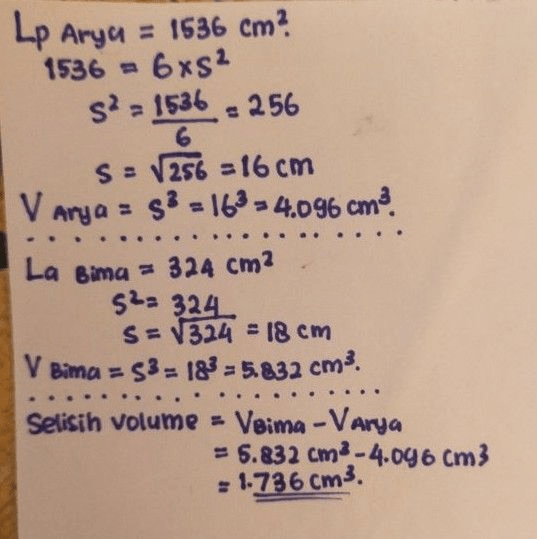 Lp Arya = 1536 cm².
1536 = 6×s²
s² = 1536/6 = 256
s = √256 = 16 cm
V Arya = s³ = 16³ = 4.096 cm³.
La Bima = 324 cm²
s² = 324
s = √324 = 18 cm
V Bima = s³ = 18³ = 5.832 cm³.
Selisih volume = VBima - VArya
= 5.832 cm³ - 4.096 cm3
= 1.736 cm³.